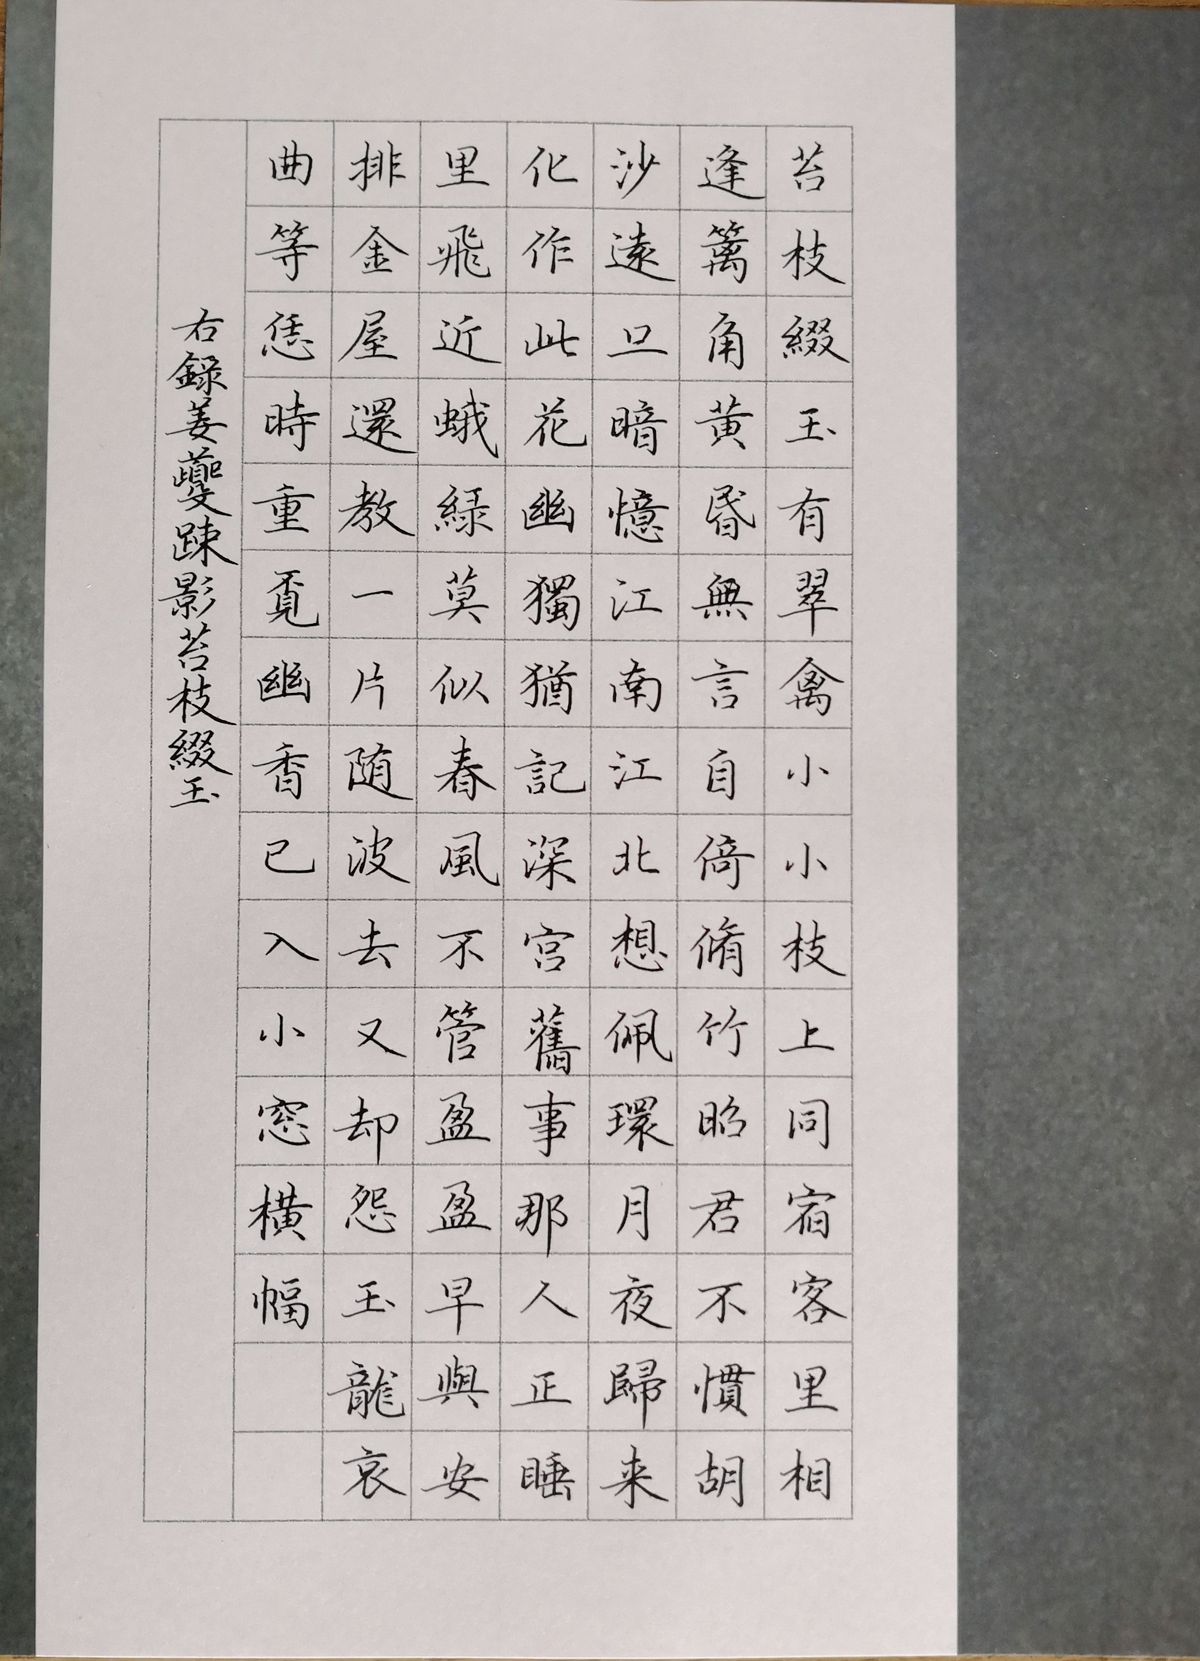 苔枝綴玉有翠禽小小枝上同宿客里相
逢篱角黄昏無言自倚脩竹昭君不慣胡
沙遠旦暗憶江南江北想佩環月夜歸来
化作此花幽獨猶記深宫舊事那人正睡
里飛近蛾緑莫似春風不管盈盈早與安
排金屋還教一片随波去又却怨玉龍哀
曲等恁時重覓幽香已入小窓横幅
右録姜夔踈影苔枝綴玉